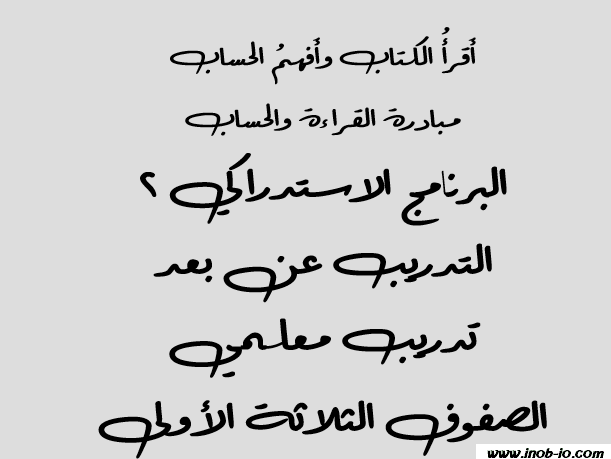 أَقرأُ الكتاب وأَفهمُ الحساب
مبادرة القراءة والحساب
البرنامج الاستدراكي ٢
التدريب عن بعد
تدريب معلمي
الصفوف الثلاثة الأولى
www.inob-io.com